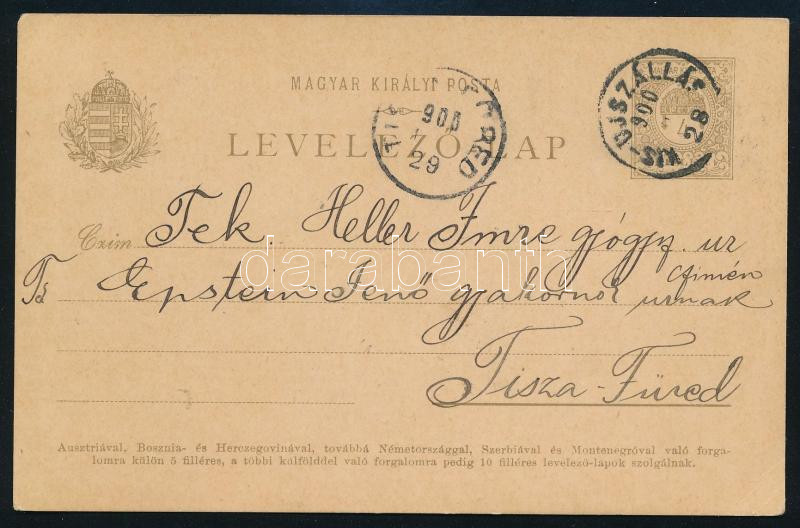 MAGYAR KIRÁLYI POSTA
LEVELEZŐ-LAP
KIS-UJSZÁLLÁS
900
28
900
29
Czim Tek. Heller Imre gyógysz. ur
czimén
Ts Epstein Jenő gyakornok urnak
Tisza-Füred
darabanth
Ausztriával, Bosznia- és Herczegovinával, továbbá Németországgal, Szerbiával és Montenegróval való forga-
lomra külön 5 filléres, a többi külfölddel való forgalomra pedig 10 filléres levelező-lapok szolgálnak.